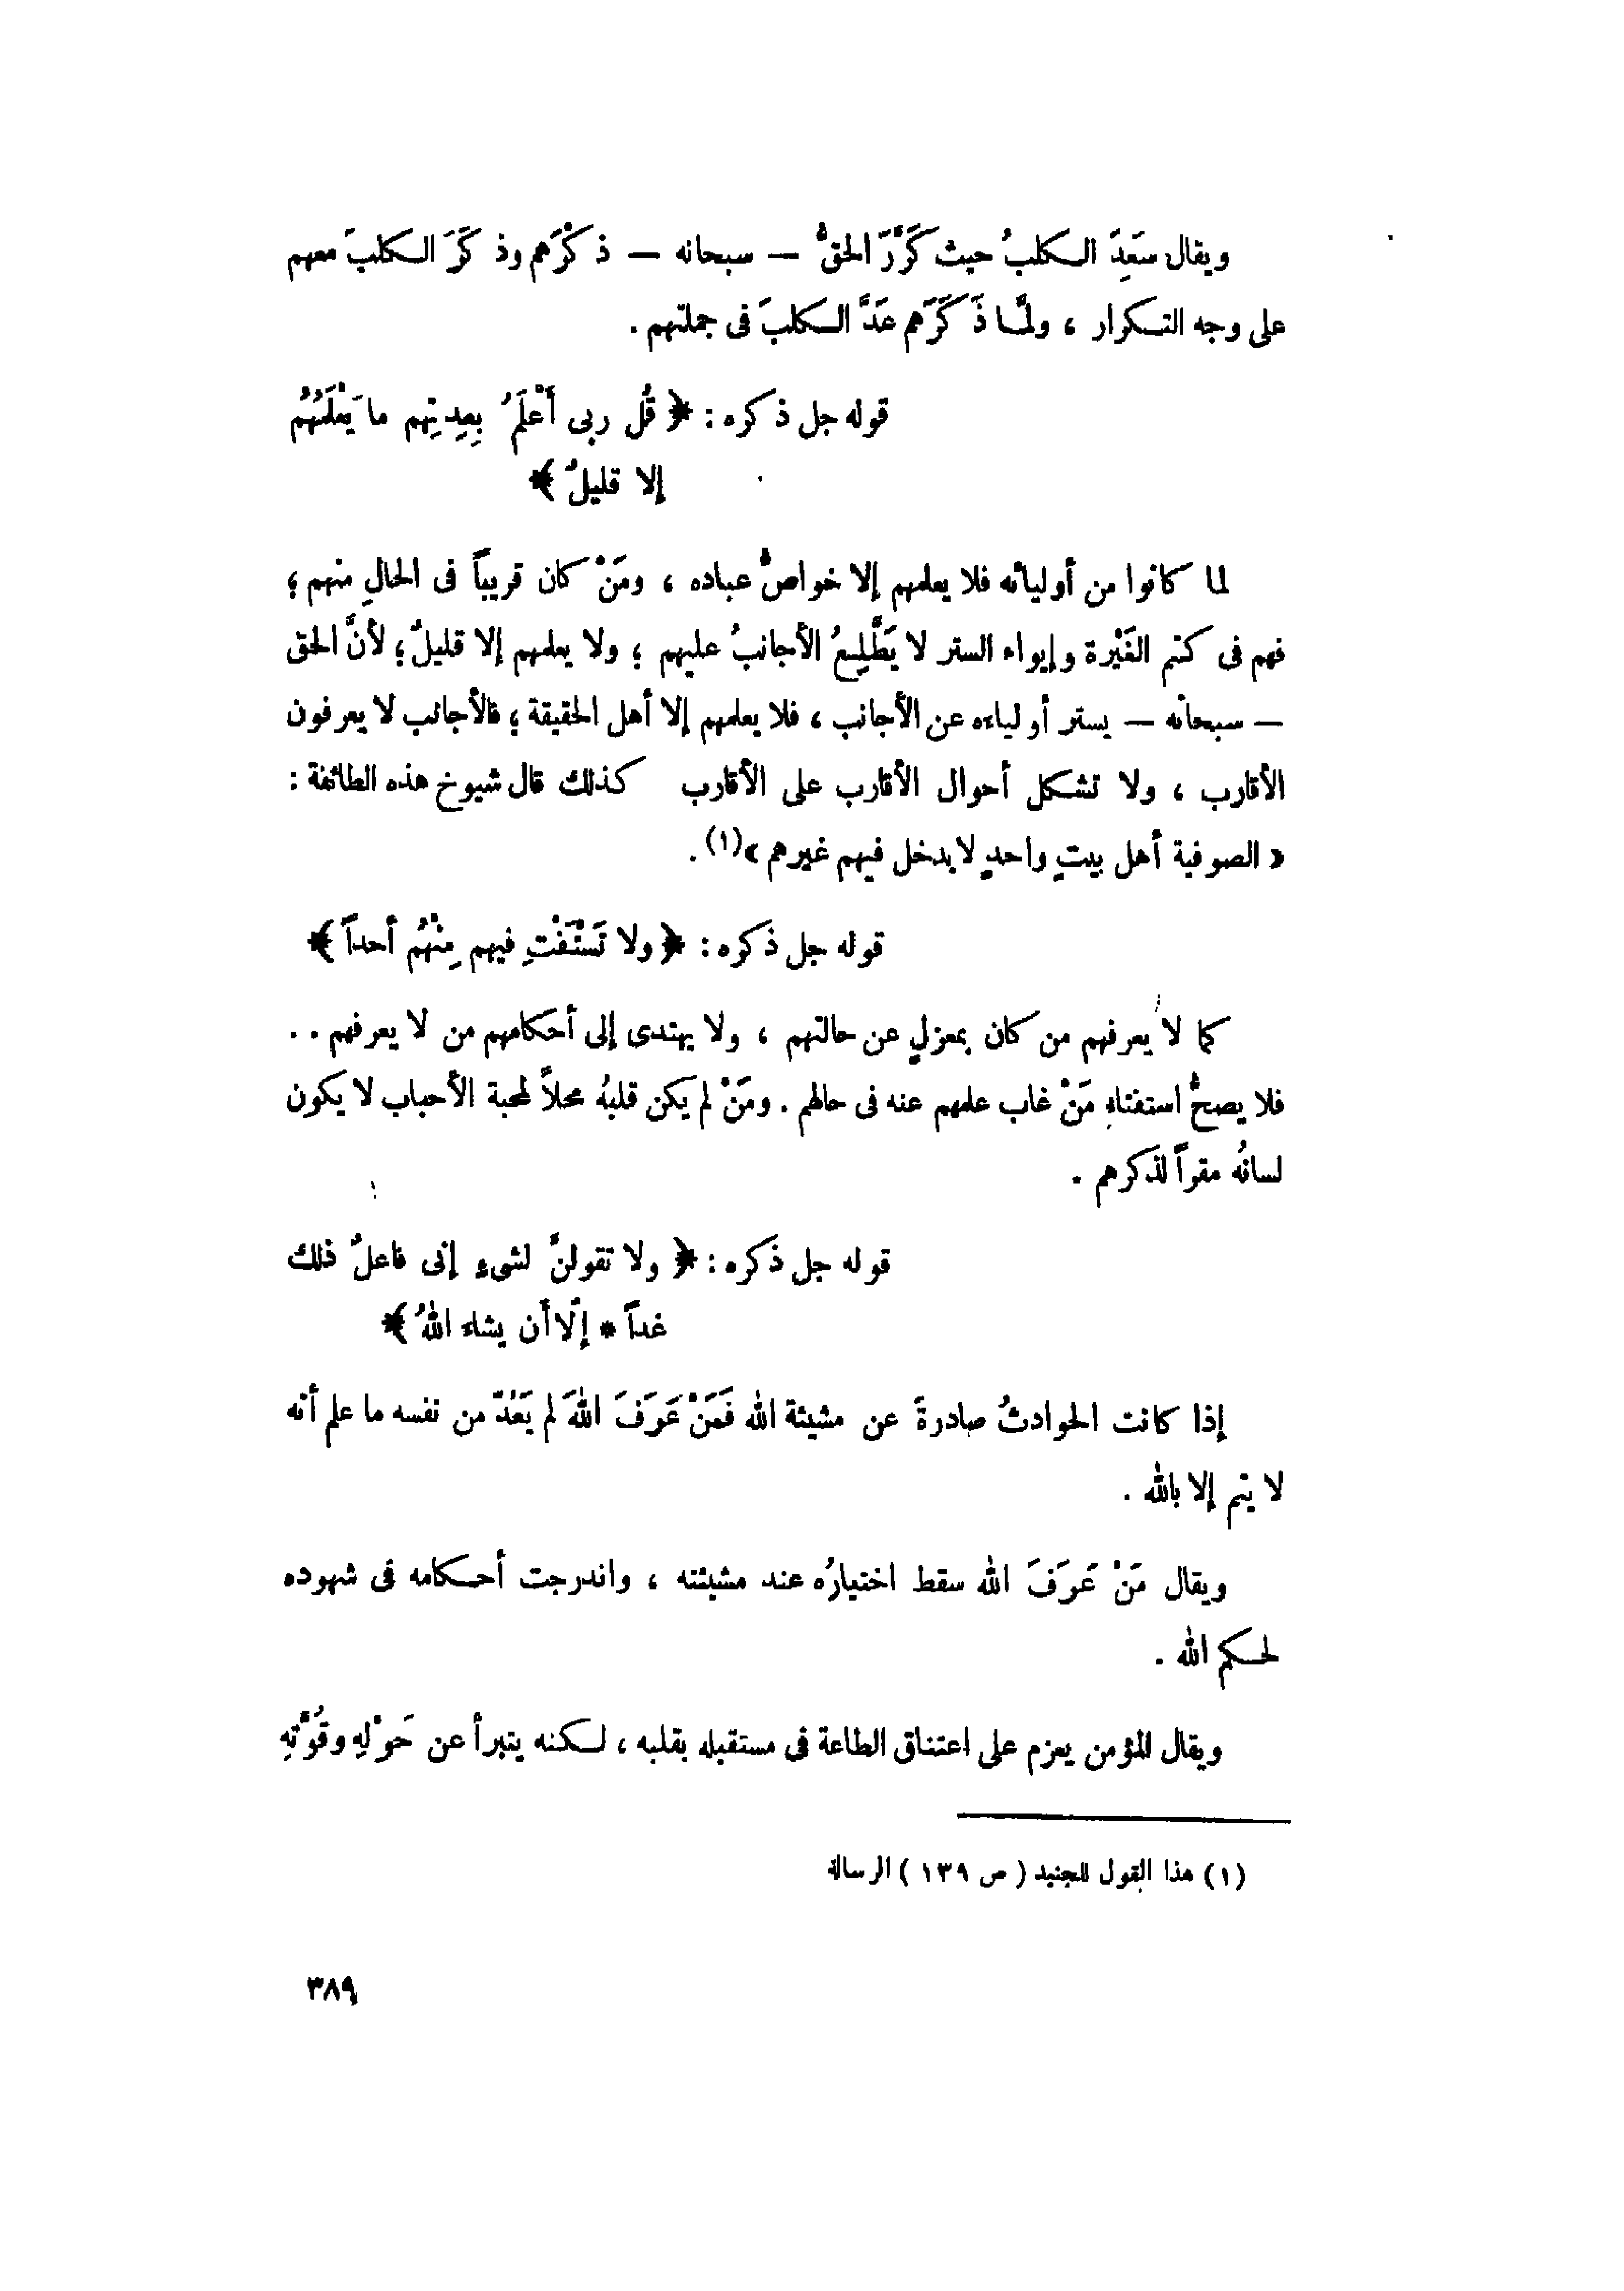 ويقال سَعِدَ الكلبُ حيث كَرَّرَ الحقُّ — سبحانه — ذكْرَهم وذكَرَ الكلبَ معهم
على وجه التكرار ، ولمَّا ذَكَرَهم عَدَّ الكلبَ فى جملتهم .
قوله جل ذكره : ﴿ قُل ربى أَعْلَمُ بِعِدتِهم ما يَعْلَمُهُم
إلا قليلٌ ﴾
لما كانوا من أوليائه فلا يعلمهم إلا خواصُّ عباده ، ومَنْ كان قريباً فى الحالِ منهم ؛
فهم فى كتم الغَيْرة وإيواء الستر لا يَطَّلِعُ الأجانبُ عليهم ؛ ولا يعلمهم إلا قليلٌ ؛ لأنَّ الحق
— سبحانه — يستر أولياءه عن الأجانب ، فلا يعلمهم إلا أهل الحقيقة ؛ فالأجانب لا يعرفون
الأقارب ، ولا تشكل أحوال الأقارب على الأقارب كذلك قال شيوخ هذه الطائفة :
« الصوفية أهل بيتٍ واحدٍ لا يدخل فيهم غيرهم »(١) .
قوله جل ذكره : ﴿ ولا تَسْتَفْتِ فيهم مِنْهُم أحداً ﴾
كما لا يعرفهم من كان بمعزلٍ عن حالتهم ، ولا يهتدى إلى أحكامهم من لا يعرفهم . .
فلا يصحُّ استفتاء مَنْ غاب علمهم عنه فى حالهم . ومَنْ لم يكن قلبُه محلاً لمحبة الأحباب لا يكون
لسانُه مقراً لذكرهم .
قوله جل ذكره : ﴿ ولا تقولنَّ لشىءٍ إنى فاعلٌ ذلك
غداً * إلَّا أن يشاء اللهُ ﴾
إذا كانت الحوادثُ صادرةً عن مشيئة الله فَمَنْ عَرَفَ اللهَ لم يَعُدّ من نفسه ما علم أنه
لا يتم إلا بالله .
ويقال مَنْ عَرَفَ الله سقط اختيارُه عند مشيئته ، واندرجت أحكامه فى شهوده
لحكم الله .
ويقال المؤمن يعزم على اعتناق الطاعة فى مستقبله بقلبه ، لكنه يتبرأ عن حَوْلِه وقُوَّتِهِ
(١) هذا القول للجنيد ( ص ١٣٩ ) الرسالة
٣٨٩